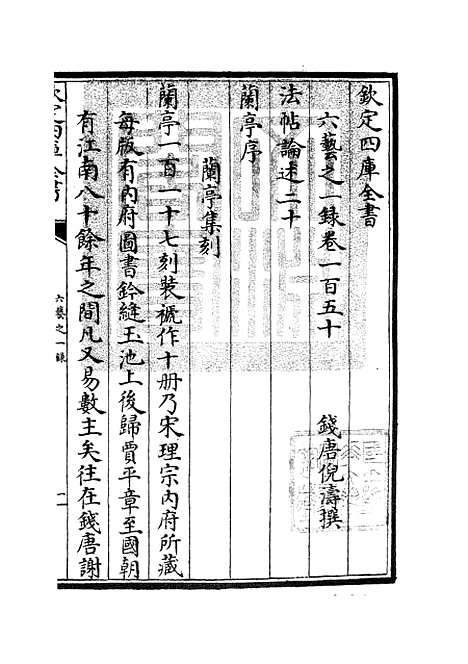 欽定四庫全書
六藝之一録卷一百五十
錢唐倪濤撰
法帖論述二十
蘭亭序
蘭亭集刻
蘭亭一百一十七刻裝褫作十册乃宋理宗內府所藏
每版有內府圖書鈐縫玉池上後歸賈平章至國朝
有江南八十餘年之間凡又易數主矣往在錢唐謝
六藝之一録